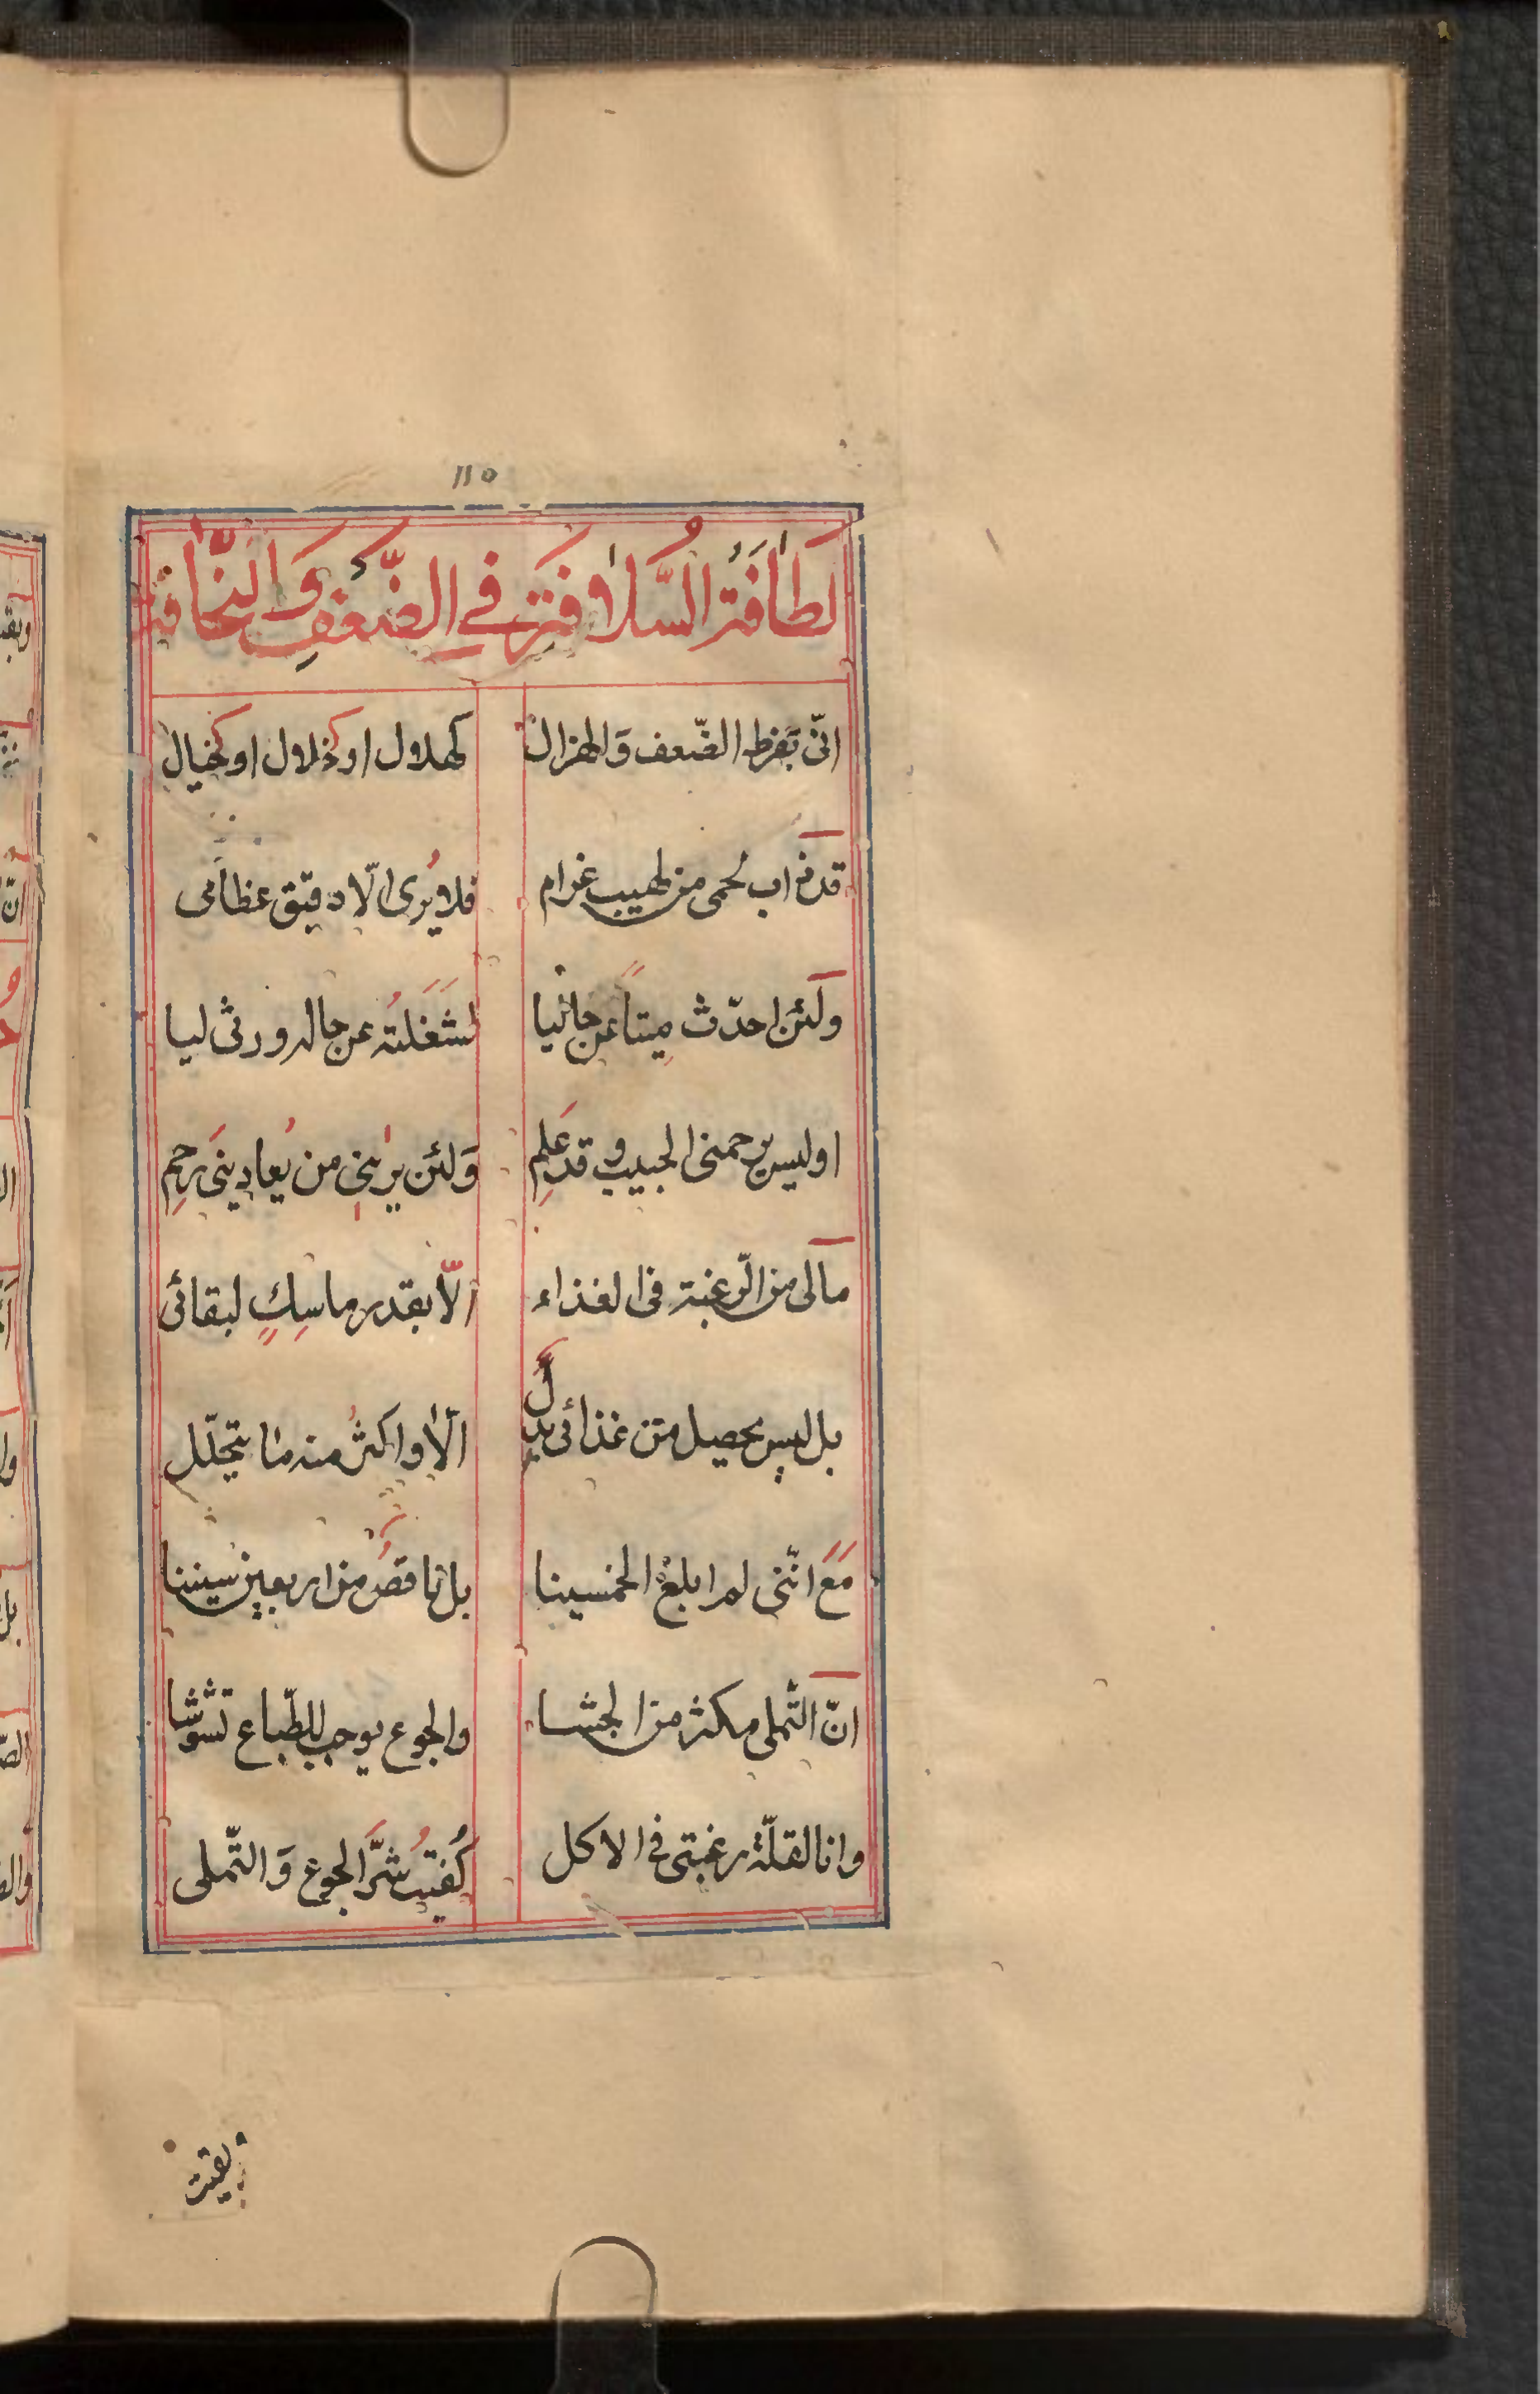 ١١٥
لَطافَةُ السُّلافَةِ فِي الضَّعْفِ وَالنَّحافَة
انّى بفرط الضّعف وَالهزال كهلال او كخلال او كخيال
قد ذاب لحمى من لهيب غرام فلا يُرى الّا دقيق عظامى
ولَئن احدّث ميتاً عن حاليا لشَغَلتُه عن حاله ورثى ليا
اوليس يرحمنى الحبيب وقد عَلِم وَلئن يرانِى من يُعادينى رَحِم
مالى من الرّغبة فى الغذاء الّا بقدر ماسِكٍ لبقائى
بل ليس يحصل من غذائى بدلٌ الّا واكثرُ منه ما يتحلّل
مَعَ انّنى لم ابلغ الخمسينا بل ناقصٌ من اربعين سنينا
انّ التّملى مكثر من الجشا والجوع يوجب للطّباع تشوّشا
وانا لقلّة رغبتى فى الاكل كُفيتُ شرَّ الجوع وَالتّملى
بقيت